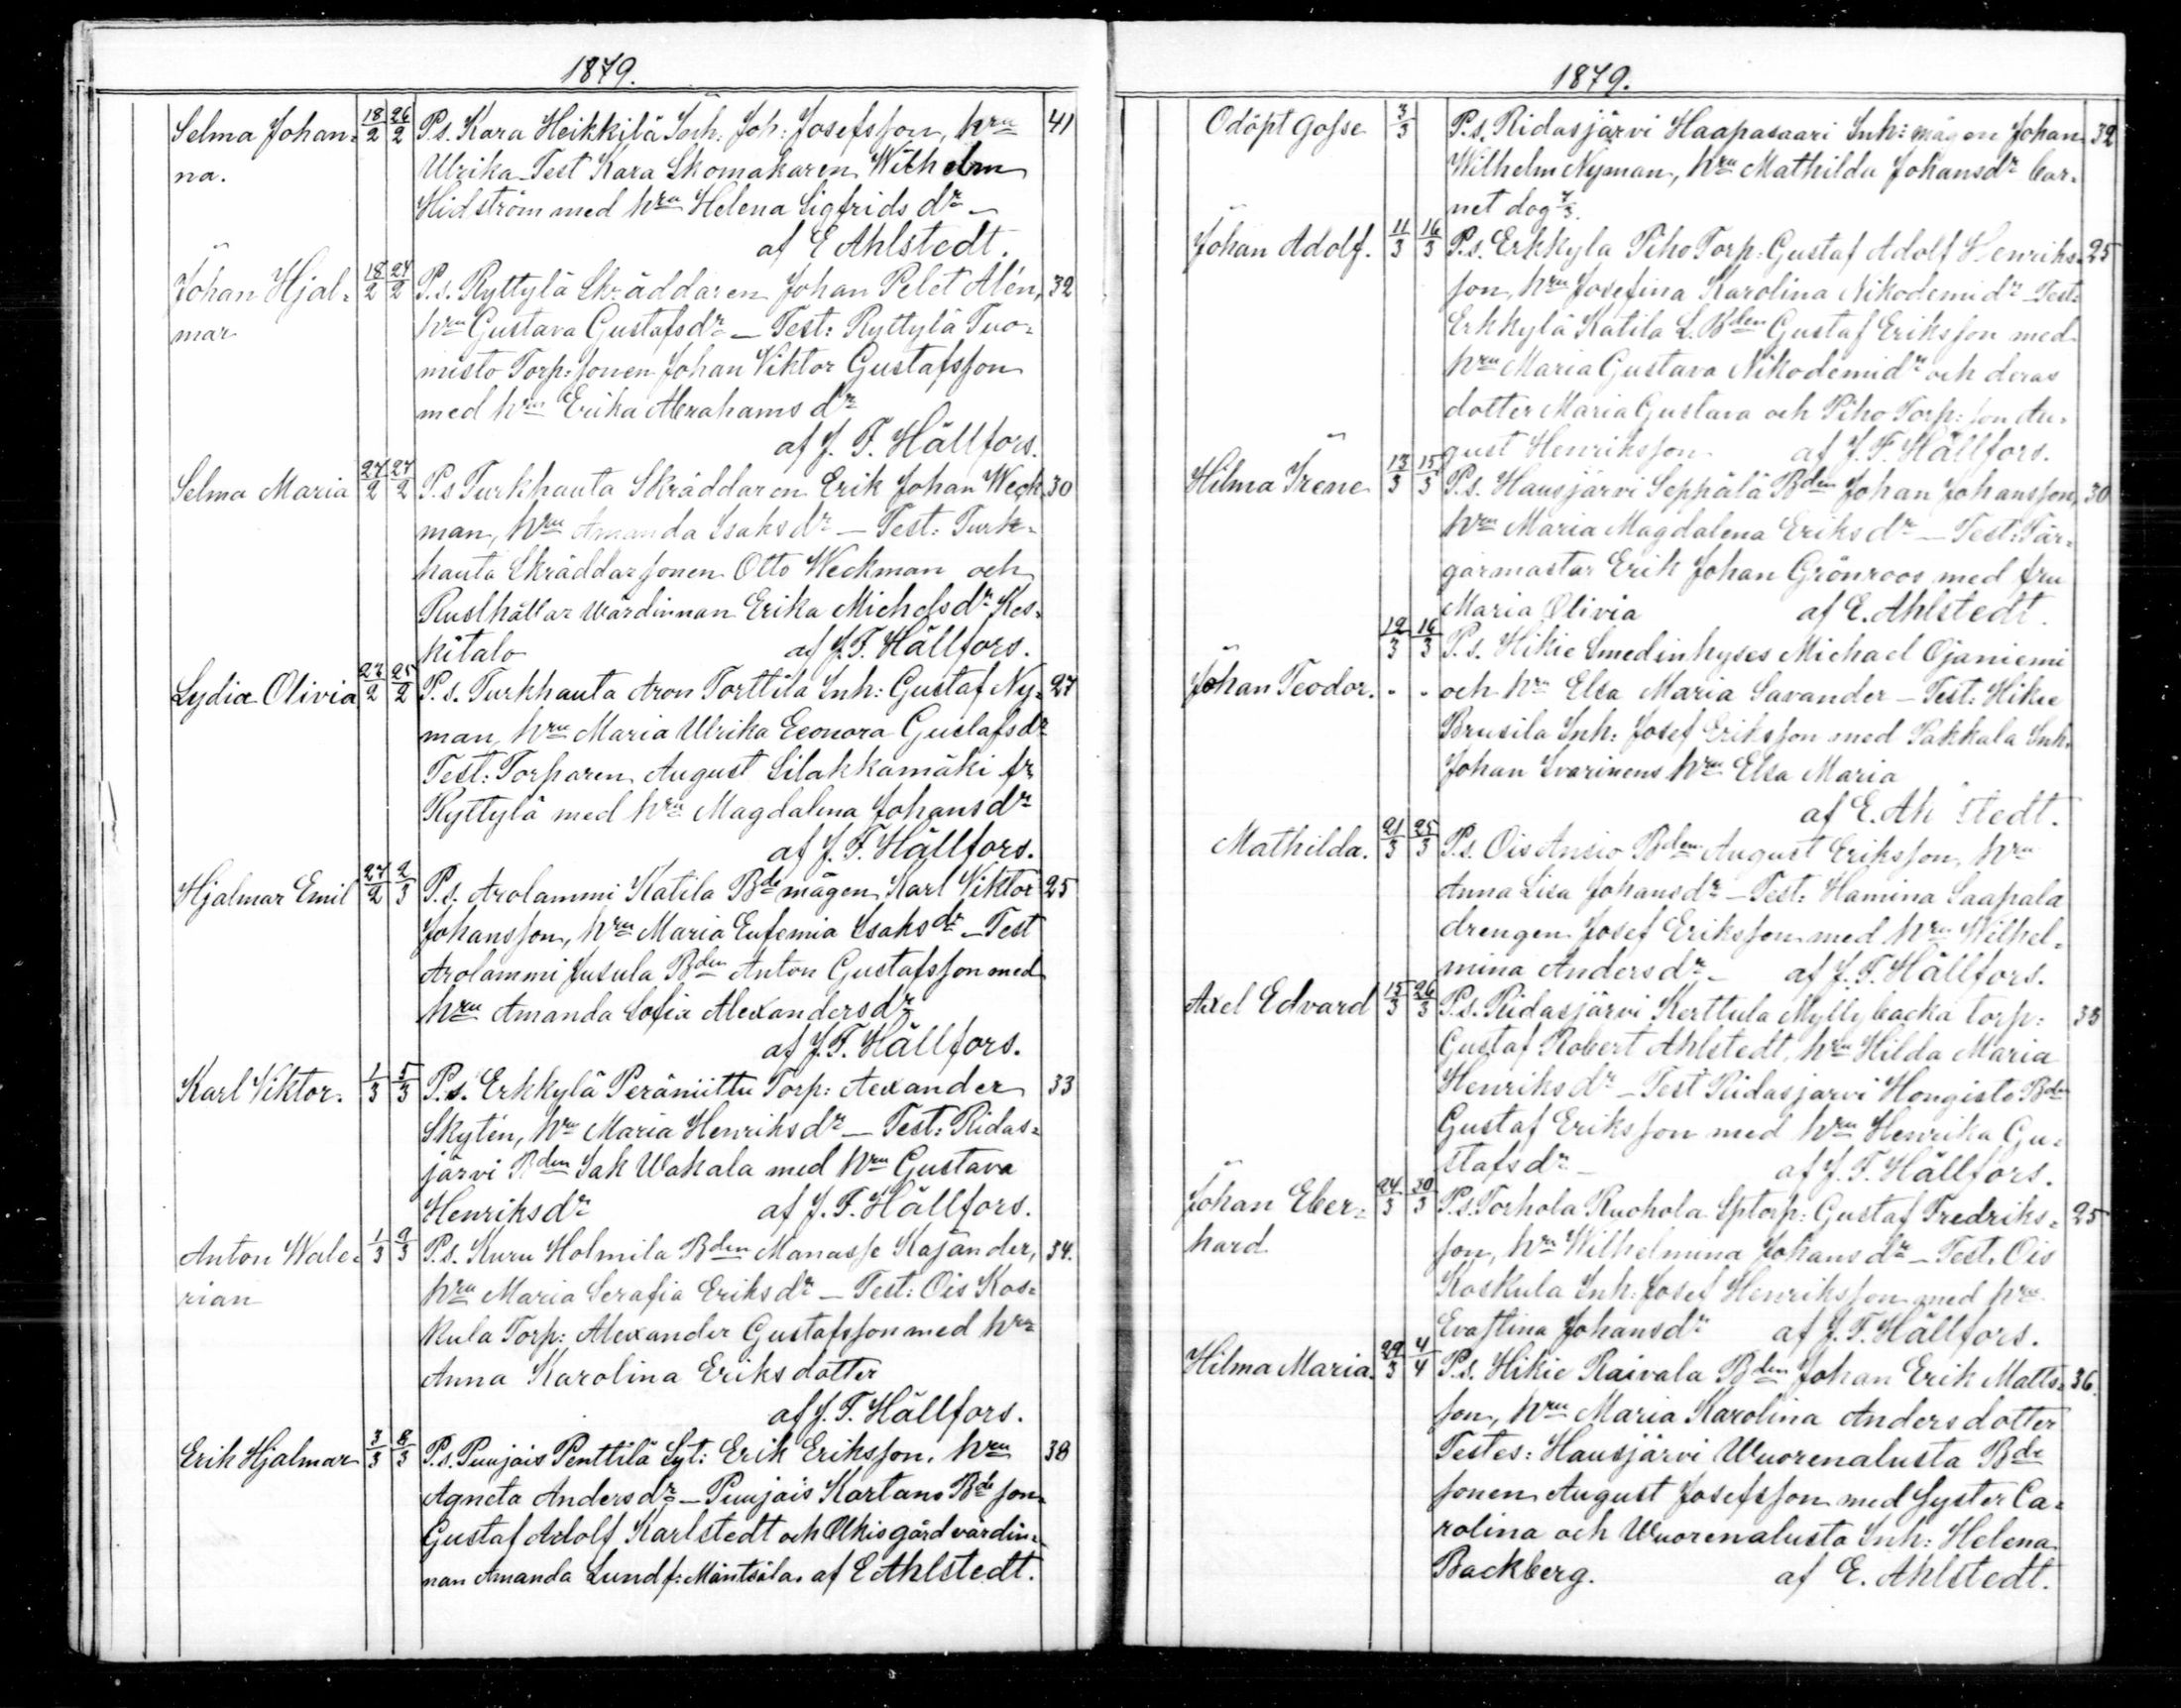 1879.
Selma Johan= 18/2 26/2 P.s. Kara Heikkilä Inh: Joh: Josefsson, hru 41
na. Ulrika Test Kara Skomakaren Wilhelm
Hidström med hru Helena Sigfrids dr –
af E Ahlstedt.
Johan Hjal= 18/2 27/2 P.s. Ryttylä Skräddaren Johan Pelet Alén, 32
mar hru Gustava Gustafsdr – Test: Ryttylä Tuo=
misto Torp: sonen Johan Viktor Gustafsson
med hru Erika Abrahams dr
af J. F. Hällfors.
Selma Maria 27/2 27/2 P.s Turkhauta Skräddaren Erik Johan Weck 30
man, hru Amanda Isaks dr – Test: Turk=
hauta Skräddarsonen Otto Weckman och
Rusthållar wärdinnan Erika Michelsdr Kes=
kitalo af J. F. Hällfors.
Lydia Olivia 23/2 25/2 P.s. Turkhauta Aron Torttila Inh: Gustaf Ny= 27
man, hru Maria Ulrika Eeonora Gustafsdr
Test: Torparen August Silakkamäki fr
Ryttylä med hru Magdalena Johansdr
af J. F. Hällfors.
Hjalmar Emil 27/2 2/3 P.s. Arolammi Katila Bde mågen Karl Viktor 25
Johansson, hru Maria Eufemia Isaksdr – Test
Arolammi Jusula Bden Anton Gustafsson med
hru Amanda Sofia Alexandersdr
af J. F. Hällfors.
Karl Viktor. 1/3 5/3 P.s. Erkkylä Peräniittu Torp: Aexander 33
Skytén, hru Maria Henriksdr – Test: Ridas=
järvi Bden Isak Wakala med hru Gustava
Henriksdr af J. F. Hällfors.
Anton Wale= 1/3 9/3 P.s. Kuru Holmila Bden Manasse Kajander, 34.
rian hru Maria Serafia Eriksdr – Test: Ois Kos=
kula Torp: Alexander Gustafsson med hru
Anna Karolina Eriksdotter
af J. F. Hällfors.
Erik Hjalmar 3/3 8/3 P.s. Puujais Penttilä Syt: Erik Eriksson, hru 38
Agneta Andersdr – Puujais Kartano Bde son
Gustaf Adolf Karlstedt och Olkis gård värdin=
nan Amanda Lund f: Mäntsälä. af E Ahlstedt.
1879.
Odöpt gosse 3/3 P.s. Ridasjärvi Haapasaari Inh: mågen Johan 32
Wilhelm Nyman, hru Mathilda Johansdr bar=
net dog 7/3.
Johan Adolf. 11/3 16/3 P.s. Erkkyla Piho Torp: Gustaf Adolf Henriks= 25
son, hru Josefina Karolina Nikodemidr – Test:
Erkkylä Katila L. Bden Gustaf Eriksson med
hru Maria Gustava Nikodemidr och deras
dotter Maria Gustava och Piho Torp: son Au=
gust Henriksson af J. F. Hällfors.
Hilma Irene 13/3 15/3 P.s. Hausjärvi Seppälä Bden Johan Johansson, 30
hru Maria Magdalena Eriks dr – Test: Fär=
garmastar Erik Johan Grönroos med fru
Maria Olivia af E. Ahlstedt.
12/3 16/3 P.s. Hikie Smedinhyses Michael Ojaniemi
Johan Teodor. - - och hru Elsa Maria Savander – Test: Hikie
Brusila Inh: Josef Eriksson med Sakkala Inh.
Johan Svarinens hru Elsa Maria
af E. Ah stedt.
Mathilda. 21/3 25/3 P.s. Ois Ansio Bden August Eriksson, hru
Anna Lisa Johansdr – Test: Hamina Saapala
drengen Josef Eriksson med hru Wilhel=
mina Andersdr – af J. F. Hällfors.
Axel Edvard 15/3 26/3 P.s. Ridasjärvi Kerttula Myllybacka torp: 33
Gustaf Robert Ahlstedt, hru Hilda Maria
Henriks dr – Test Ridasjarvi Hongisto Bden
Gustaf Eriksson med hru Henrika Gu=
stafsdr – af J. F. Hällfors.
Johan Eber= 24/3 30/3 P.s. Torhola Ruohola Sptorp: Gustaf Fredriks= 25
hard son, hru Wilhelmina Johansdr – Test. Ois
Koskula Inh: Josef Henriksson med hru
Evastina Johansdr af J. F. Hällfors.
Hilma Maria. 29/3 4/4 P.s. Hikie Raivala Bden Johan Erik Matts= 36.
son, hru Maria Karolina Andersdotter
Testes: Hausjärvi Wuorenalusta Bde
sonen August Josefsson med syster Ca=
rolina och Wuorenalusta Inh: Helena
Backberg. af E. Ahlstedt.